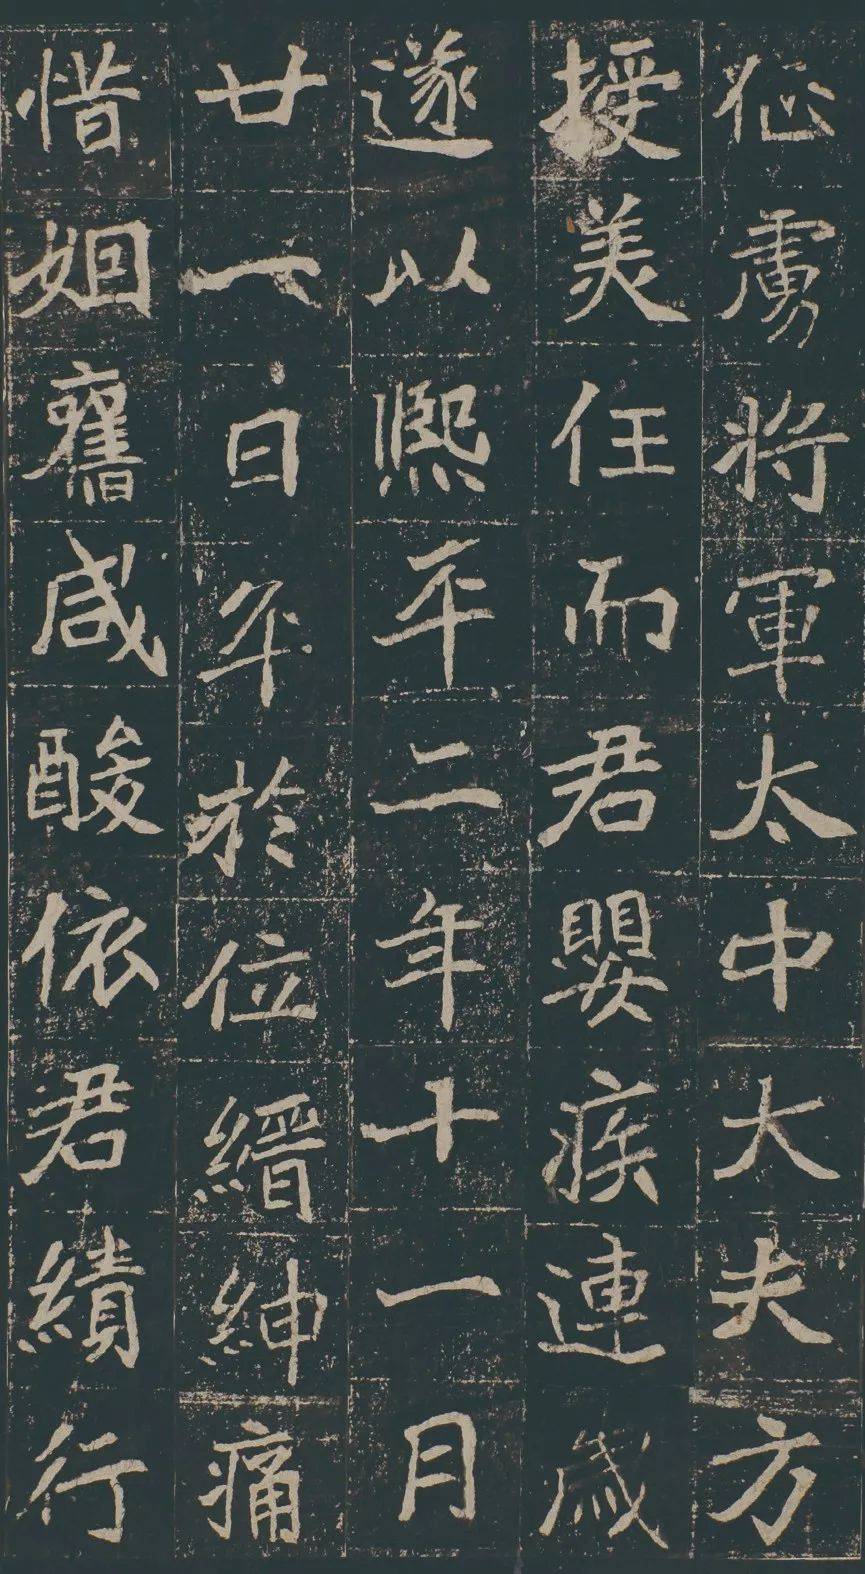 征虜將軍太中大夫方
授美任而君嬰疾連歲
遂以熙平二年十一月
廿一日卒於位縉紳痛
惜姻舊咸酸依君績行